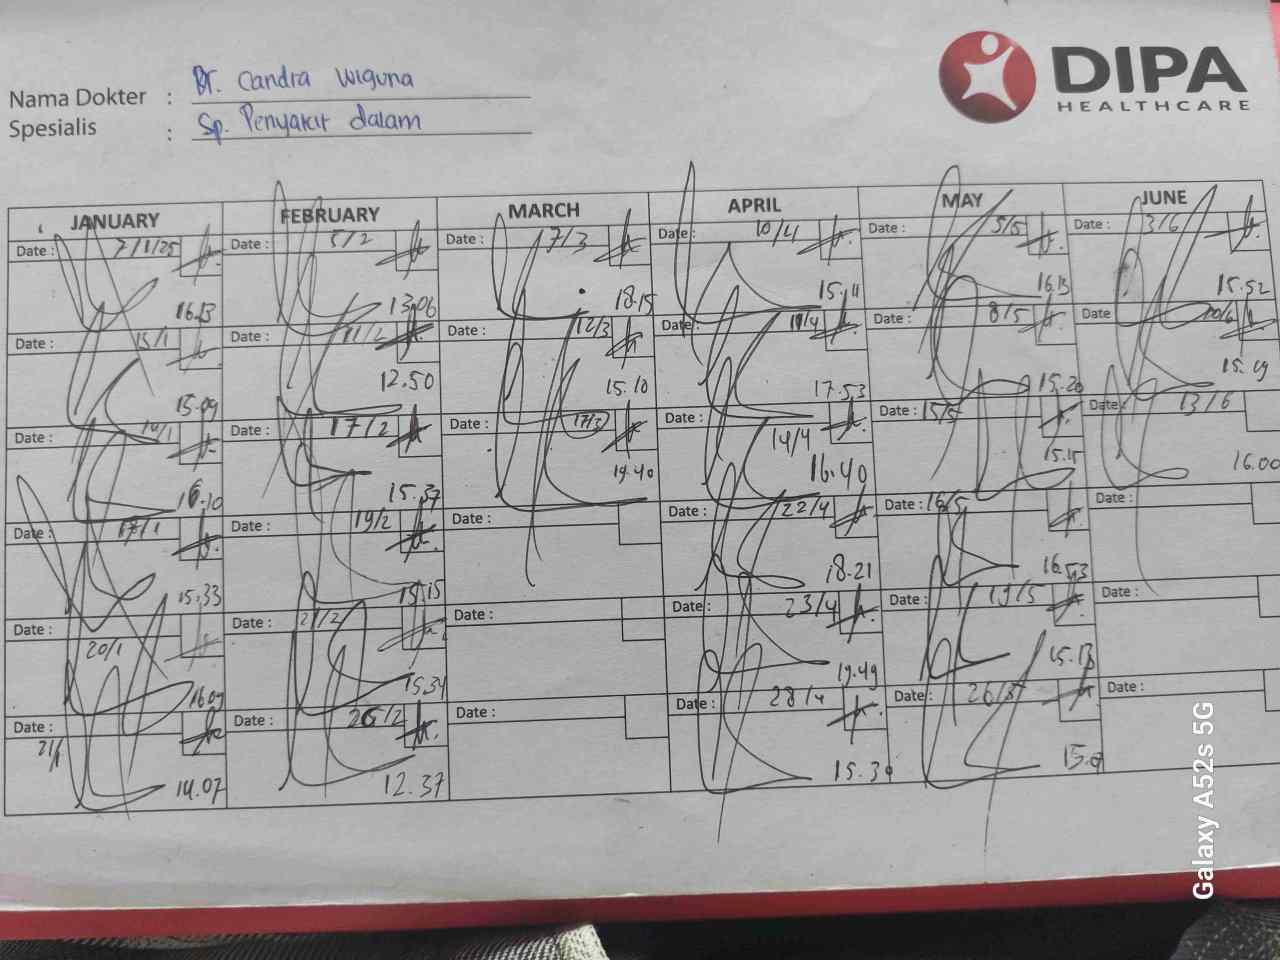 DIPA
HEALTHCARE
Nama Dokter : Dr. Candra Wiguna
Spesialis : Sp. Penyakit dalam
JANUARY FEBRUARY MARCH APRIL MAY JUNE
Date : 7/1/25 Date : 5/2 Date : 7/3 Date : 10/4 Date : 5/5 3/6
16.13 13.06 18.15 15.11 16.15 15.52
Date : 15/1 Date : 11/2 Date : 12/3 Date : 11/4 Date : 8/5 Date 10/6
15.09 12.50 15.10 17.53 15.20 15.19
Date : Date : 17/2 Date : 17/3 Date : 14/4 Date : 15/5 Date : 13/6
16.10 15.37 19.40 16.40 15.15 16.00
Date : Date : 19/2 Date : Date : 22/4 Date : 16/5 Date :
15.33 15.15 18.21 16.53
Date : 20/1 Date : 21/2 Date : Date : 23/4 Date : 19/5 Date :
16.09 15.34 19.49 15.13
Date : 21/1 Date : 26/2 Date : Date : 28/4 Date : 26/5 Date :
14.07 12.37 15.30
Galaxy A52s 5G